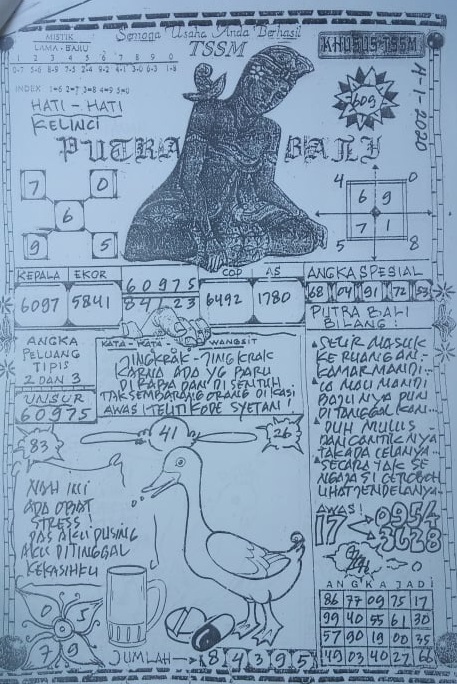 Semoga Usaha Anda Berhasil
MISTIK
LAMA - BARU
1 2 3 4 5 6 7 8 9 0
0-7 5-6 8-9 7-5 2-4 9-2 4-1 3-0 6-3 1-8
INDEX 1=6 2=7 3=8 4=9 5=0
TSSM
KHUSUS TSSM
HATI - HATI
KELINCI
609
14-1-2020
PUTRA BALI
7 0
6
9 5
4 0
6 9
7 1
5 8
KEPALA EKOR
6097 5841
60975
84123
COP AS
6492 1780
ANGKA SPESIAL
68 04 91 72 53
ANGKA
PELUANG
TIPIS
2 DAN 3
UNSUR
60975
KATA - KATA WANGSIT
JINGKRAK - JINGKRAK
KARNA ADA YG BARU
DI RABA DAN DI SENTUH
TAK SEMBARANG ORANG DI KASI
AWAS! TELITI KODE SYETAN!
PUTRA BALI
BILANG:
SELIR MASUK
KE RUANGAN
KAMAR MANDI
LO MAU MANDI
BAJUNYA PUN
DI TANGGALKAN
DUH MULUS
DAN CANTIKNYA
TAK ADA CELANYA
SECARA TAK SE
NGAJA SI CEROBOH
LIHAT JENDELANYA
83
41
26
NAH INI
ADA OBAT
STRESS
PAS AKU PUSING
AKU DI TINGGAL
KEKASIHKU
AWAS!
17
0954
3628
0 5
7 9
JUMLAH
8 4 3 9 5
ANGKA JADI
86 77 09 75 17
99 40 55 61 30
57 90 19 00 35
49 03 40 27 66